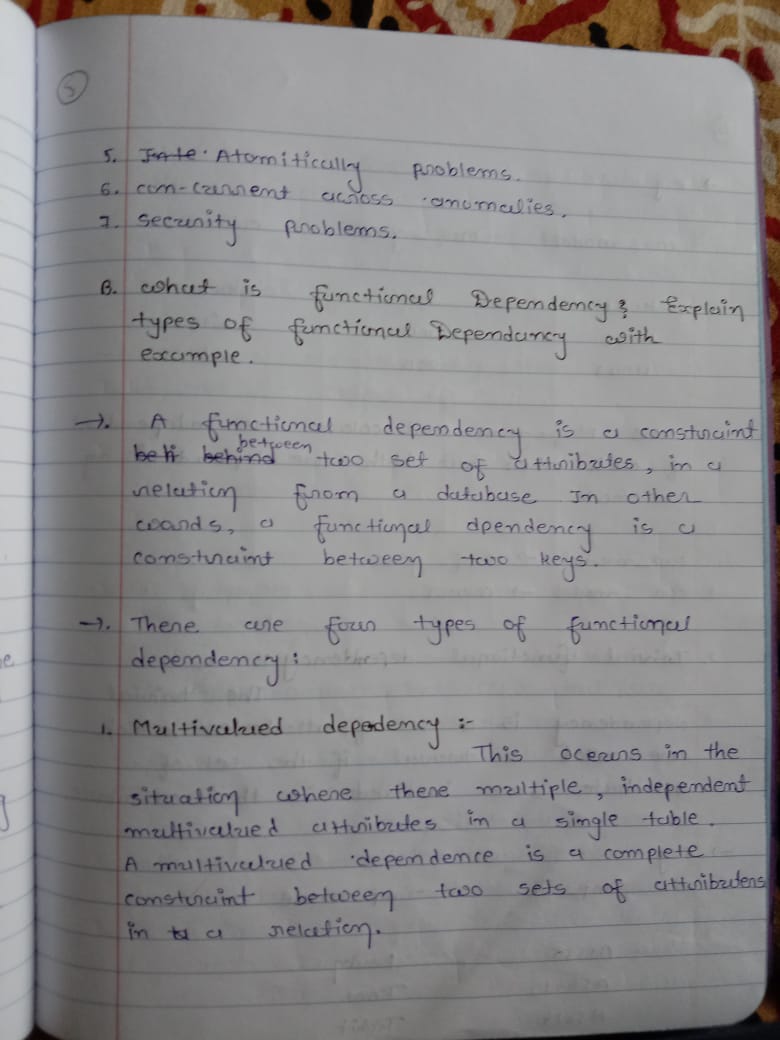 5
5. Inte. Atomitically problems.
6. con-current across anomalies.
7. security problems.
B. what is functional Dependency? Explain
types of functional Dependancy with
example.
→. A functional dependency is a constraint
beh behind between two set of attributes, in a
relation from a database In other
words, a functional dpendency is a
constraint between two keys.
→. There are four types of functional
dependency:
1. Multivalued depedency :-
This occurs in the
situation where there multiple, independent
multivalued attributes in a single table.
A multivalued dependence is a complete
constraint between two sets of attributens
in a relation.